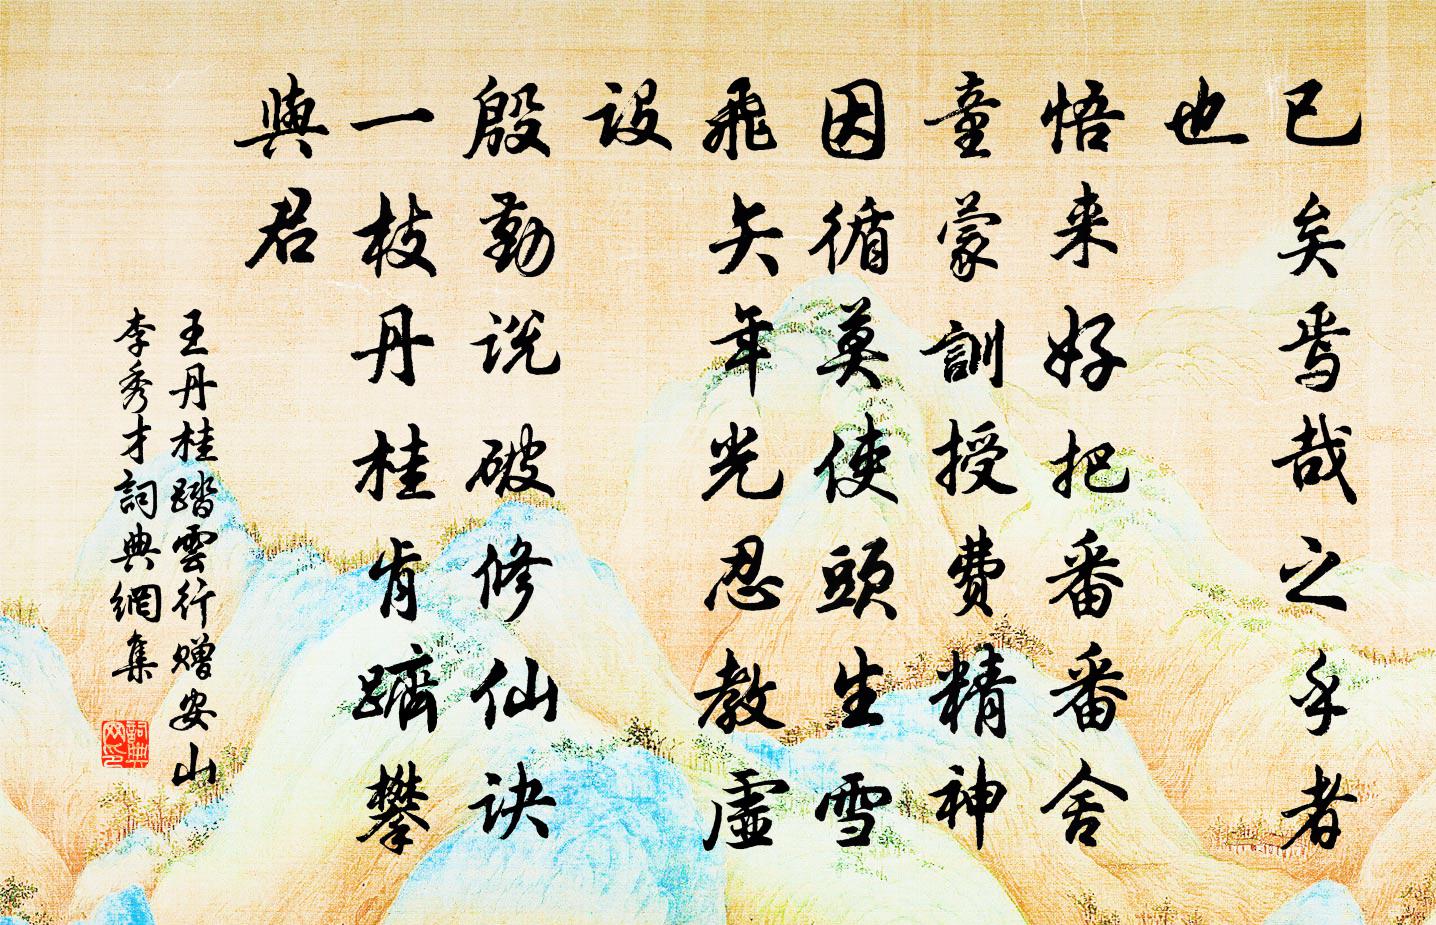 已矣焉哉之乎者
也
悟来好把番番舍
童蒙訓授費精神
因循莫使頭生雪
飛矢年光忍教虛
設
殷勤说破修仙诀
一枝丹桂肯躋攀
與君
王丹桂踏雲行赠安山
李秀才詞典網集
詞典